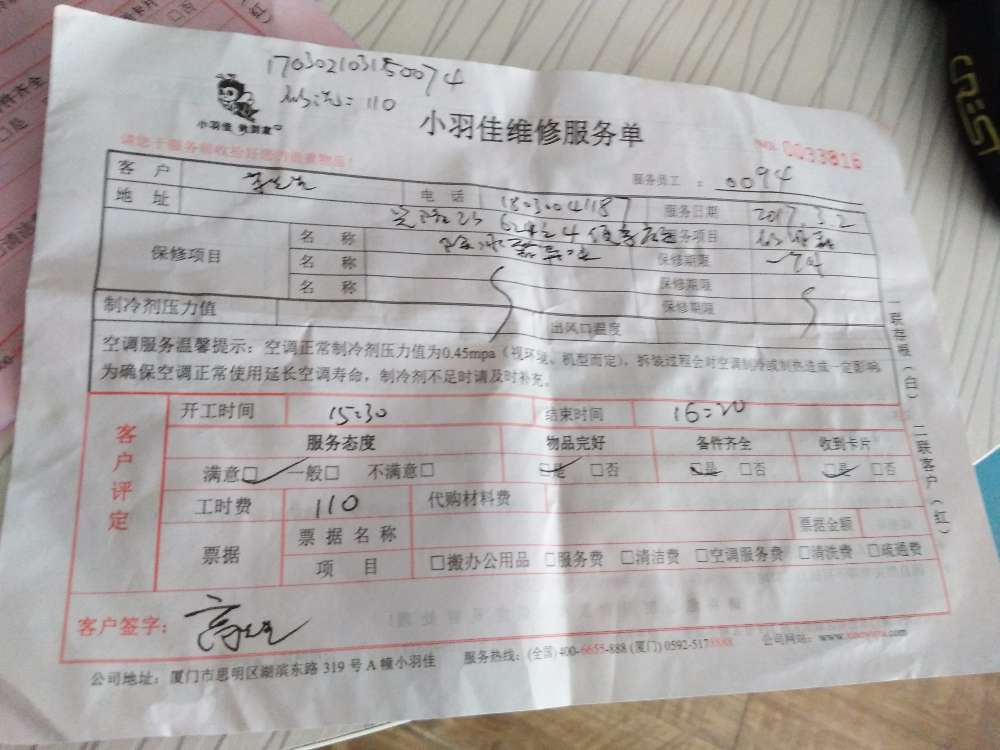 170302103150074
110
小羽佳
小羽佳维修服务单
请您于服务前收拾好您的贵重物品!
NO: 0033816
服务员工 : 0094
客 户
电 话
服务日期 2017.3.2
地 址
服务项目
保修项目 名 称 保修期限
名 称 保修期限
名 称 保修期限
制冷剂压力值 出风口温度
空调服务温馨提示:空调正常制冷剂压力值为0.45mpa(视环境、机型而定),拆装过程会对空调制冷或制热造成一定影响
为确保空调正常使用延长空调寿命,制冷剂不足时请及时补充。
客户评定
开工时间 15:30 结束时间 16:20
服务态度 物品完好 备件齐全 收到卡片
满意□ 一般□ 不满意□ □是 □否 □是 □否 □是 □否
工时费 110 代购材料费
票据 票据名称 票据金额
项 目 □搬办公用品 □服务费 □清洁费 □空调服务费 □清洗费 □疏通费
客户签字:
公司地址:厦门市思明区湖滨东路 319 号 A 幢小羽佳 服务热线:(全国)400-6655-888 (厦门) 0592-5178888 公司网站:
一联存根(白) 二联客户(红)